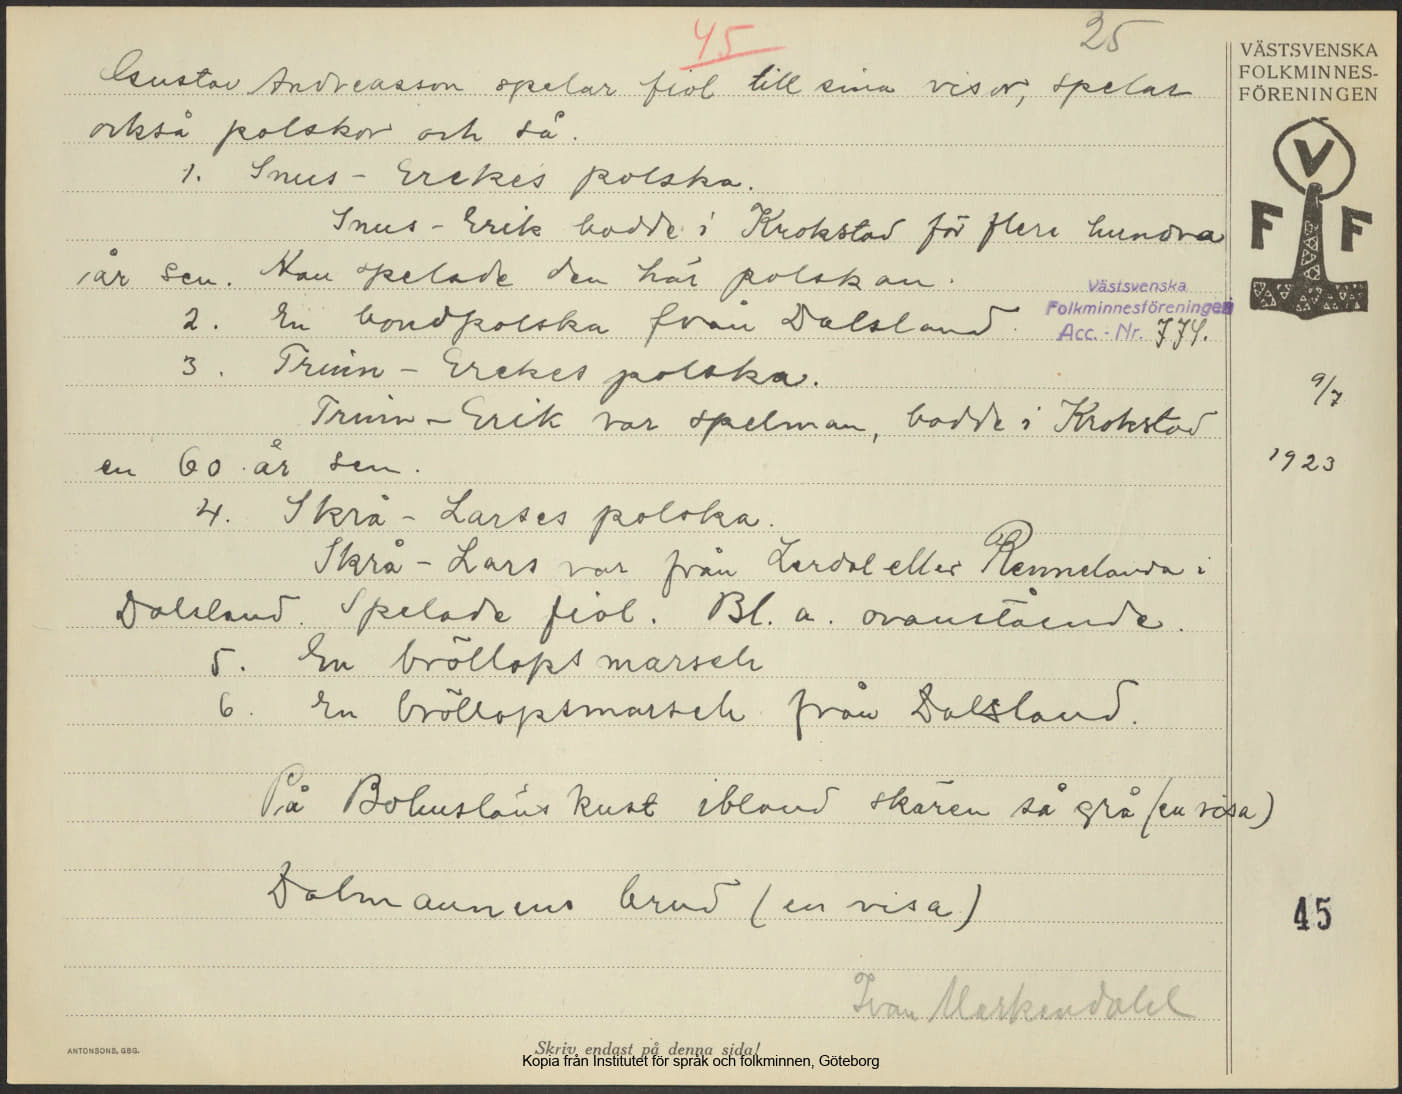 45
25
VÄSTSVENSKA
FOLKMINNES-
FÖRENINGEN
V
F F
Gustav Andreasson spelar fiol till sina visor, spelar
också polskor och så.
1. Snus-Erekes polska.
Snus-Erik bodde i Krokstad för flere hundra
år sen. Han spelade den här polskan.
Västsvenska
Folkminnesföreningen
Acc.-Nr. 774.
2. En bondpolska från Dalsland.
3. Truin-Erekes polska.
9/7
Truin-Erik var spelman, bodde i Krokstad
en 60 år sen.
1923
4. Skrå-Larses polska.
Skrå-Lars var från Lerdal eller Rennelanda i
Dalsland. Spelade fiol. Bl. a. ovanstående.
5. En bröllopsmarsch
6. En bröllopsmarsch från Dalsland.
På Bohusläns kust ibland skären så grå (en visa)
Dalmannens brud (en visa)
45
Ivan
ANTONSONS, GBG.
Skriv endast på denna sida!
Kopia från Institutet för språk och folkminnen, Göteborg